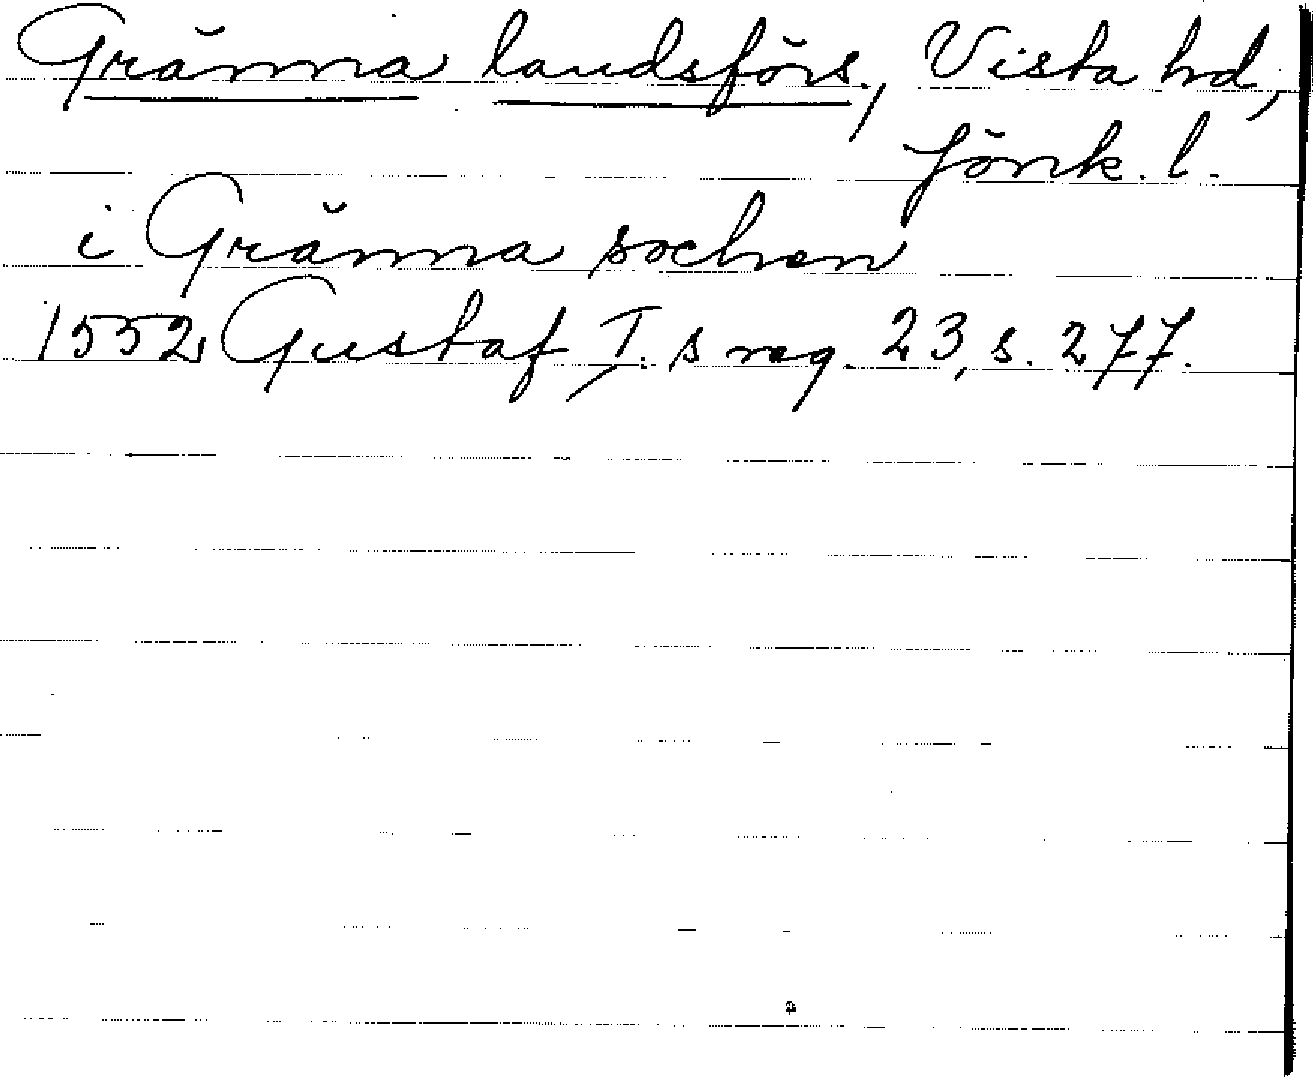 Gränna landsförs., Vista hd,
Jönk. l.
i Gränna sochen
1552 Gustaf I. s reg. 23, s. 277.